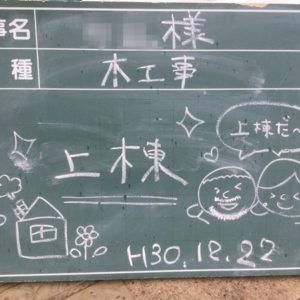 事名 様
種 木工事
上棟だぁ
上棟
H30.12.22